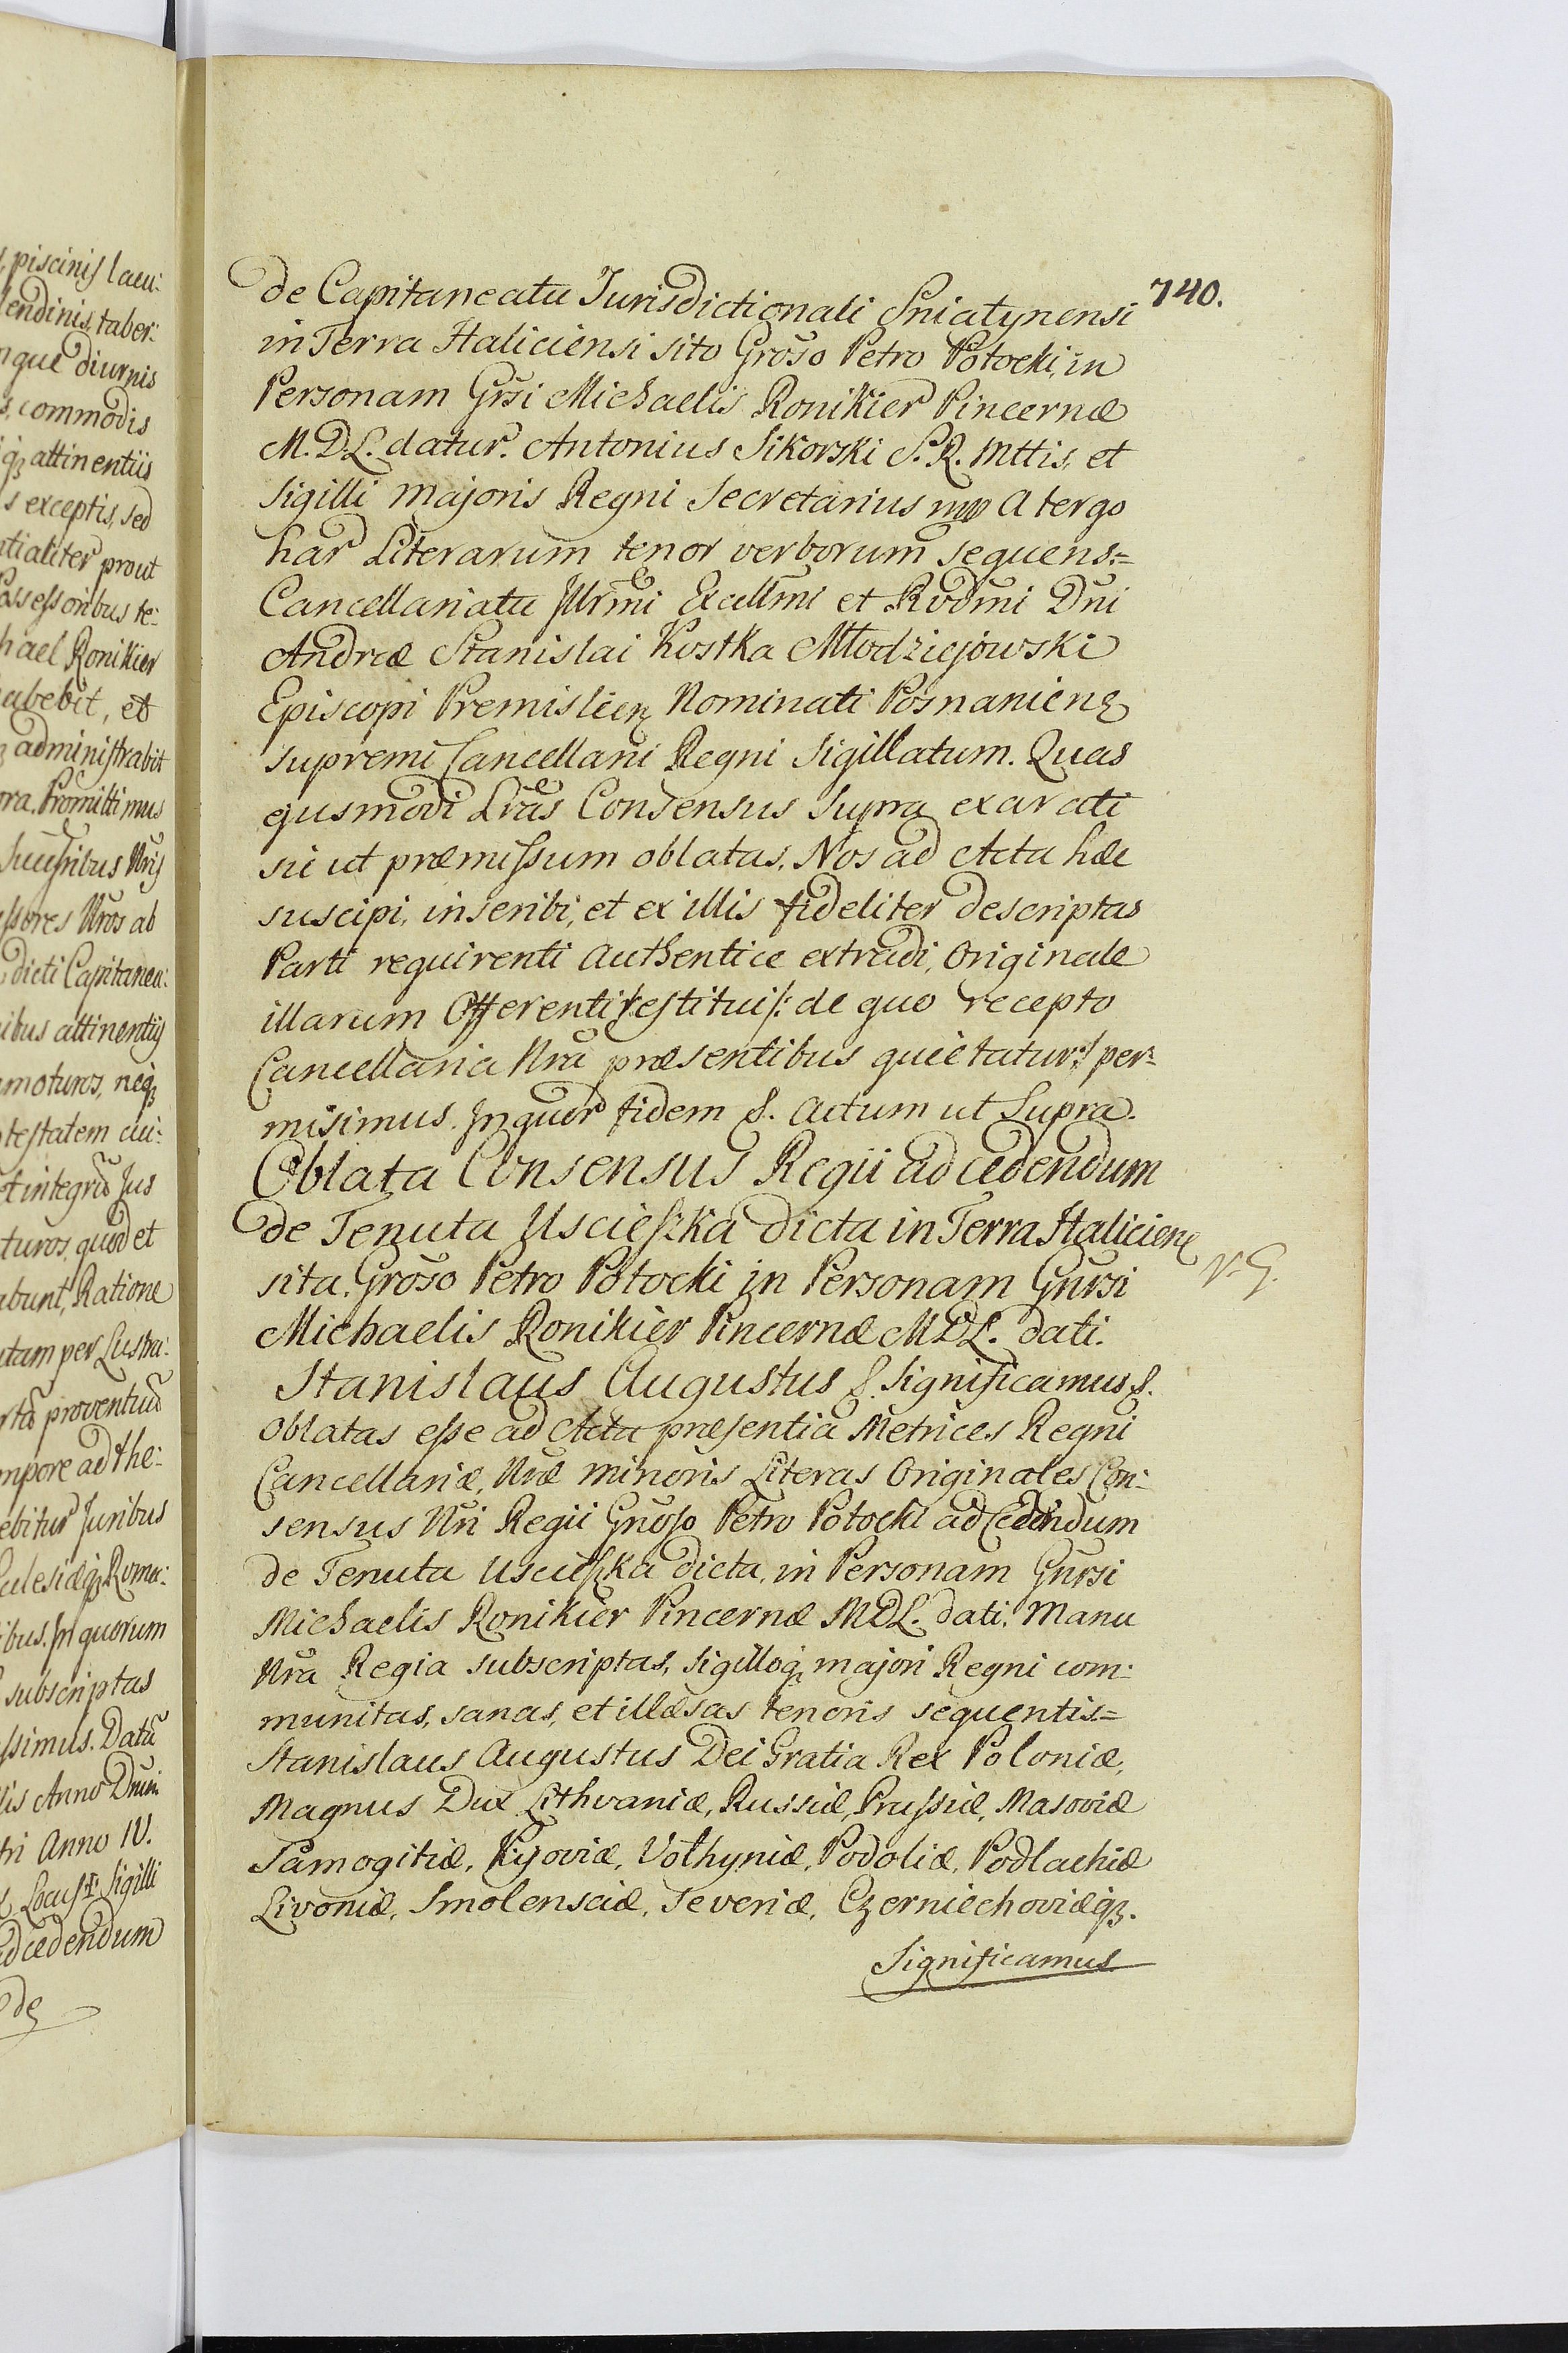 , piscinis lacu:
lendinis, taber:
nque diurnis
s, commodis
qȝ attinentiis
s exceptis, sed
ntialiter prout
Possessoribus te:
hael Ronikier
abebit, et
administrabit
ra. Promittimus
Successoribus Nris
ssores Nros ab
dicti Capitanea:
ibus attinentijs
amoturos, neqȝ
testatem cui:
et integrũ Jus
turos, quod et
abunt, Ratione
tam per Lustra:
rtã proventuũ
mpore ad the:
ebitur Juribus
Eclesiæqȝ Roma:
ibus. In quorum
subscriptas
ssimus. Datũ
lis Anno Dnni
tri Anno IV.
Locus Sigilli
ad cedendum
de
740.
de Capitaneatu Jurisdictionali Sniatynensi
in Terra Haliciensi sito Groso Petro Potocki, in
Personam Grsi Michaelis Ronikier Pincernæ
M.D.L. datur. Antonius Sikorski S.R. Mttis, et
Sigilli majoris Regni Secretarius mp A tergo
har Literarum tenor verborum sequens:=
Cancellariatu Jllrmi Excellmi et Rvdmi Dni
Andreæ Stanislai Kostka Młodziejowski
Episcopi Premislien Nominati Posnanien
supremi Cancellarii Regni Sigillatum. Quas
ejusmodi Lras Consensus supra exarati
sic ut præmissum oblatas, Nos ad Acta hæc
suscipi, inscribi, et ex illis fideliter descriptas
Parti requirenti authentice extradi, Originale
illarum Offerenti restitui /: de quo recepto
Cancellaria Nra præsentibus quietatur :/ per=
misimus. In quor fidem &. Actum ut Supra.
Oblata Consensus Regii ad cedendum
de Tenuta Uscieszka dicta in Terra Halicien
sita. Groso Petro Potocki in Personam Gnrsi
Michaelis Ronikier Pincernæ MDL. dati.
N. G.
Stanislaus Augustus &. Significamus &.
Oblatas esse ad Acta præsentia Metrices Regni
Cancellariæ, Nræ minoris Literas Originales Con:
sensus Nri Regii Gnroso Petro Potocki ad Cedendum
de Tenuta Uscieszka dicta, in Personam Gnrsi
Michaelis Ronikier Pincernæ MDL. dati. Manu
Nra Regia subscriptas, Sigilloqȝ majori Regni com:
munitas, sanas, et illæsas tenoris sequentis:=
Stanislaus Augustus Dei Gratia Rex Poloniæ,
Magnus Dux Lithvaniæ, Russiæ, Prussiæ, Masoviæ
Samogitiæ, Kijoviæ, Volhyniæ, Podoliæ, Podlachiæ
Livoniæ, Smolensciæ, Severiæ, Czerniechoviæqȝ.
Significamus